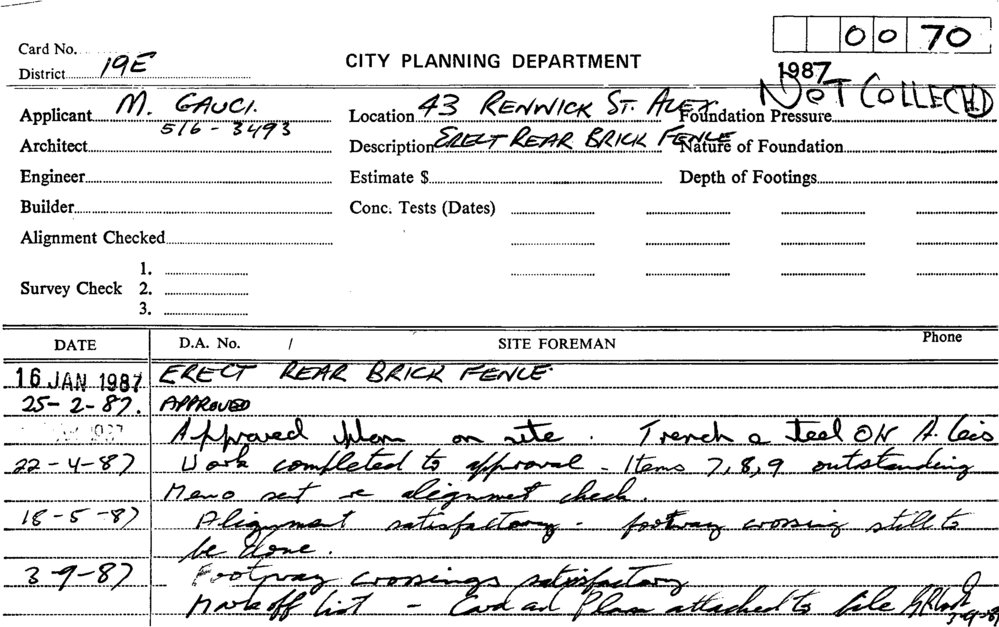 Card No.
0 0 70
District 19E
CITY PLANNING DEPARTMENT
1987
NOT COLLECTED
Applicant M. GAUCI.
Location 43 RENWICK ST. ALEX
Foundation Pressure
516-3493
Architect
Description ERECT REAR BRICK FENCE
Nature of Foundation
Engineer
Estimate $
Depth of Footings
Builder
Conc. Tests (Dates)
Alignment Checked
1.
Survey Check 2.
3.
DATE D.A. No. / SITE FOREMAN Phone
16 JAN 1987 ERECT REAR BRICK FENCE.
25-2-87. APPROVED
Approved plan on site. Trench & steel OK
22-4-87 Work completed to approval - Items 7, 8, 9 outstanding
Memo sent re alignment check.
18-5-87 Alignment satisfactory - footway crossing still to
be done.
3-9-87 Footway crossings satisfactory
Mark off list - Card and Plan attached to file
3-9-87